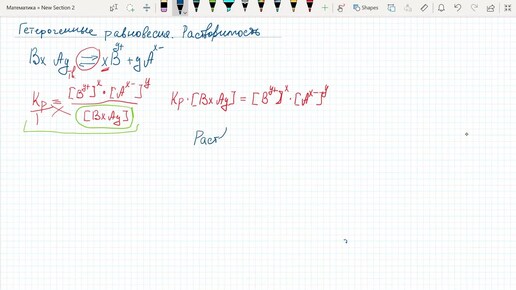 Математика » New Section 2
Shapes
Гетерогенные равновесия. Растворимость
BxAy ⇌ xB^y+ + yA^x-
тв
Kp = [B^y+]^x · [A^x-]^y / [BxAy]
1
Kp · [BxAy] = [B^y+]^x · [A^x-]^y
Раст